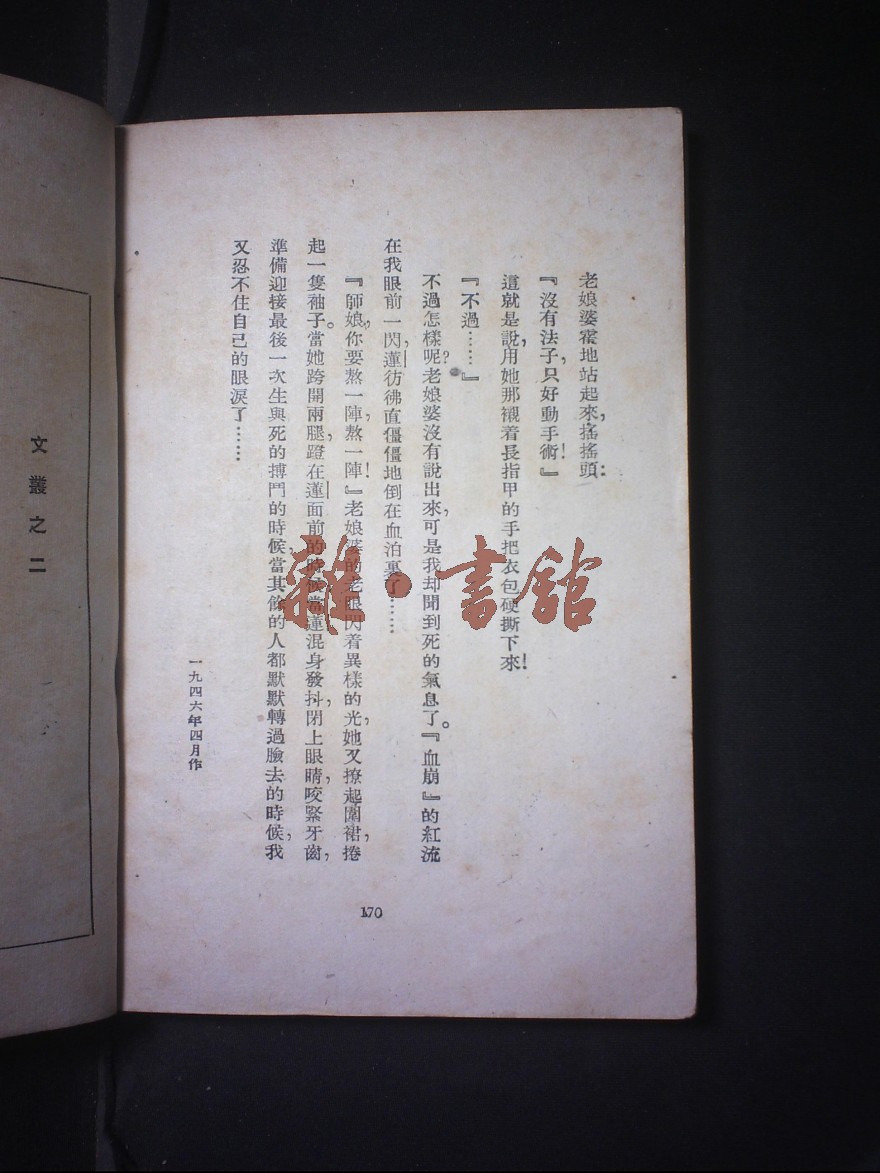 老娘婆霍地站起來，搖搖頭：
『沒有法子，只好動手術！』
這就是說，用她那襯着長指甲的手把衣包硬撕下來！
『不過……』
不過怎樣呢？老娘婆沒有說出來，可是我却聞到死的氣息了。『血崩』的紅流
在我眼前一閃，蓮彷彿直僵僵地倒在血泊裏了……
『師娘，你要熬一陣，熬一陣！』老娘婆的老眼閃着異樣的光，她又撩起圍裙，捲
起一隻袖子。當她跨開兩腿，蹬在蓮面前的時候，當蓮混身發抖，閉上眼睛，咬緊牙齒，
準備迎接最後一次生與死的搏鬥的時候，當其餘的人都默默轉過臉去的時候，我
又忍不住自己的眼淚了……
一九四六年四月作
170
文叢之二
雜·書館